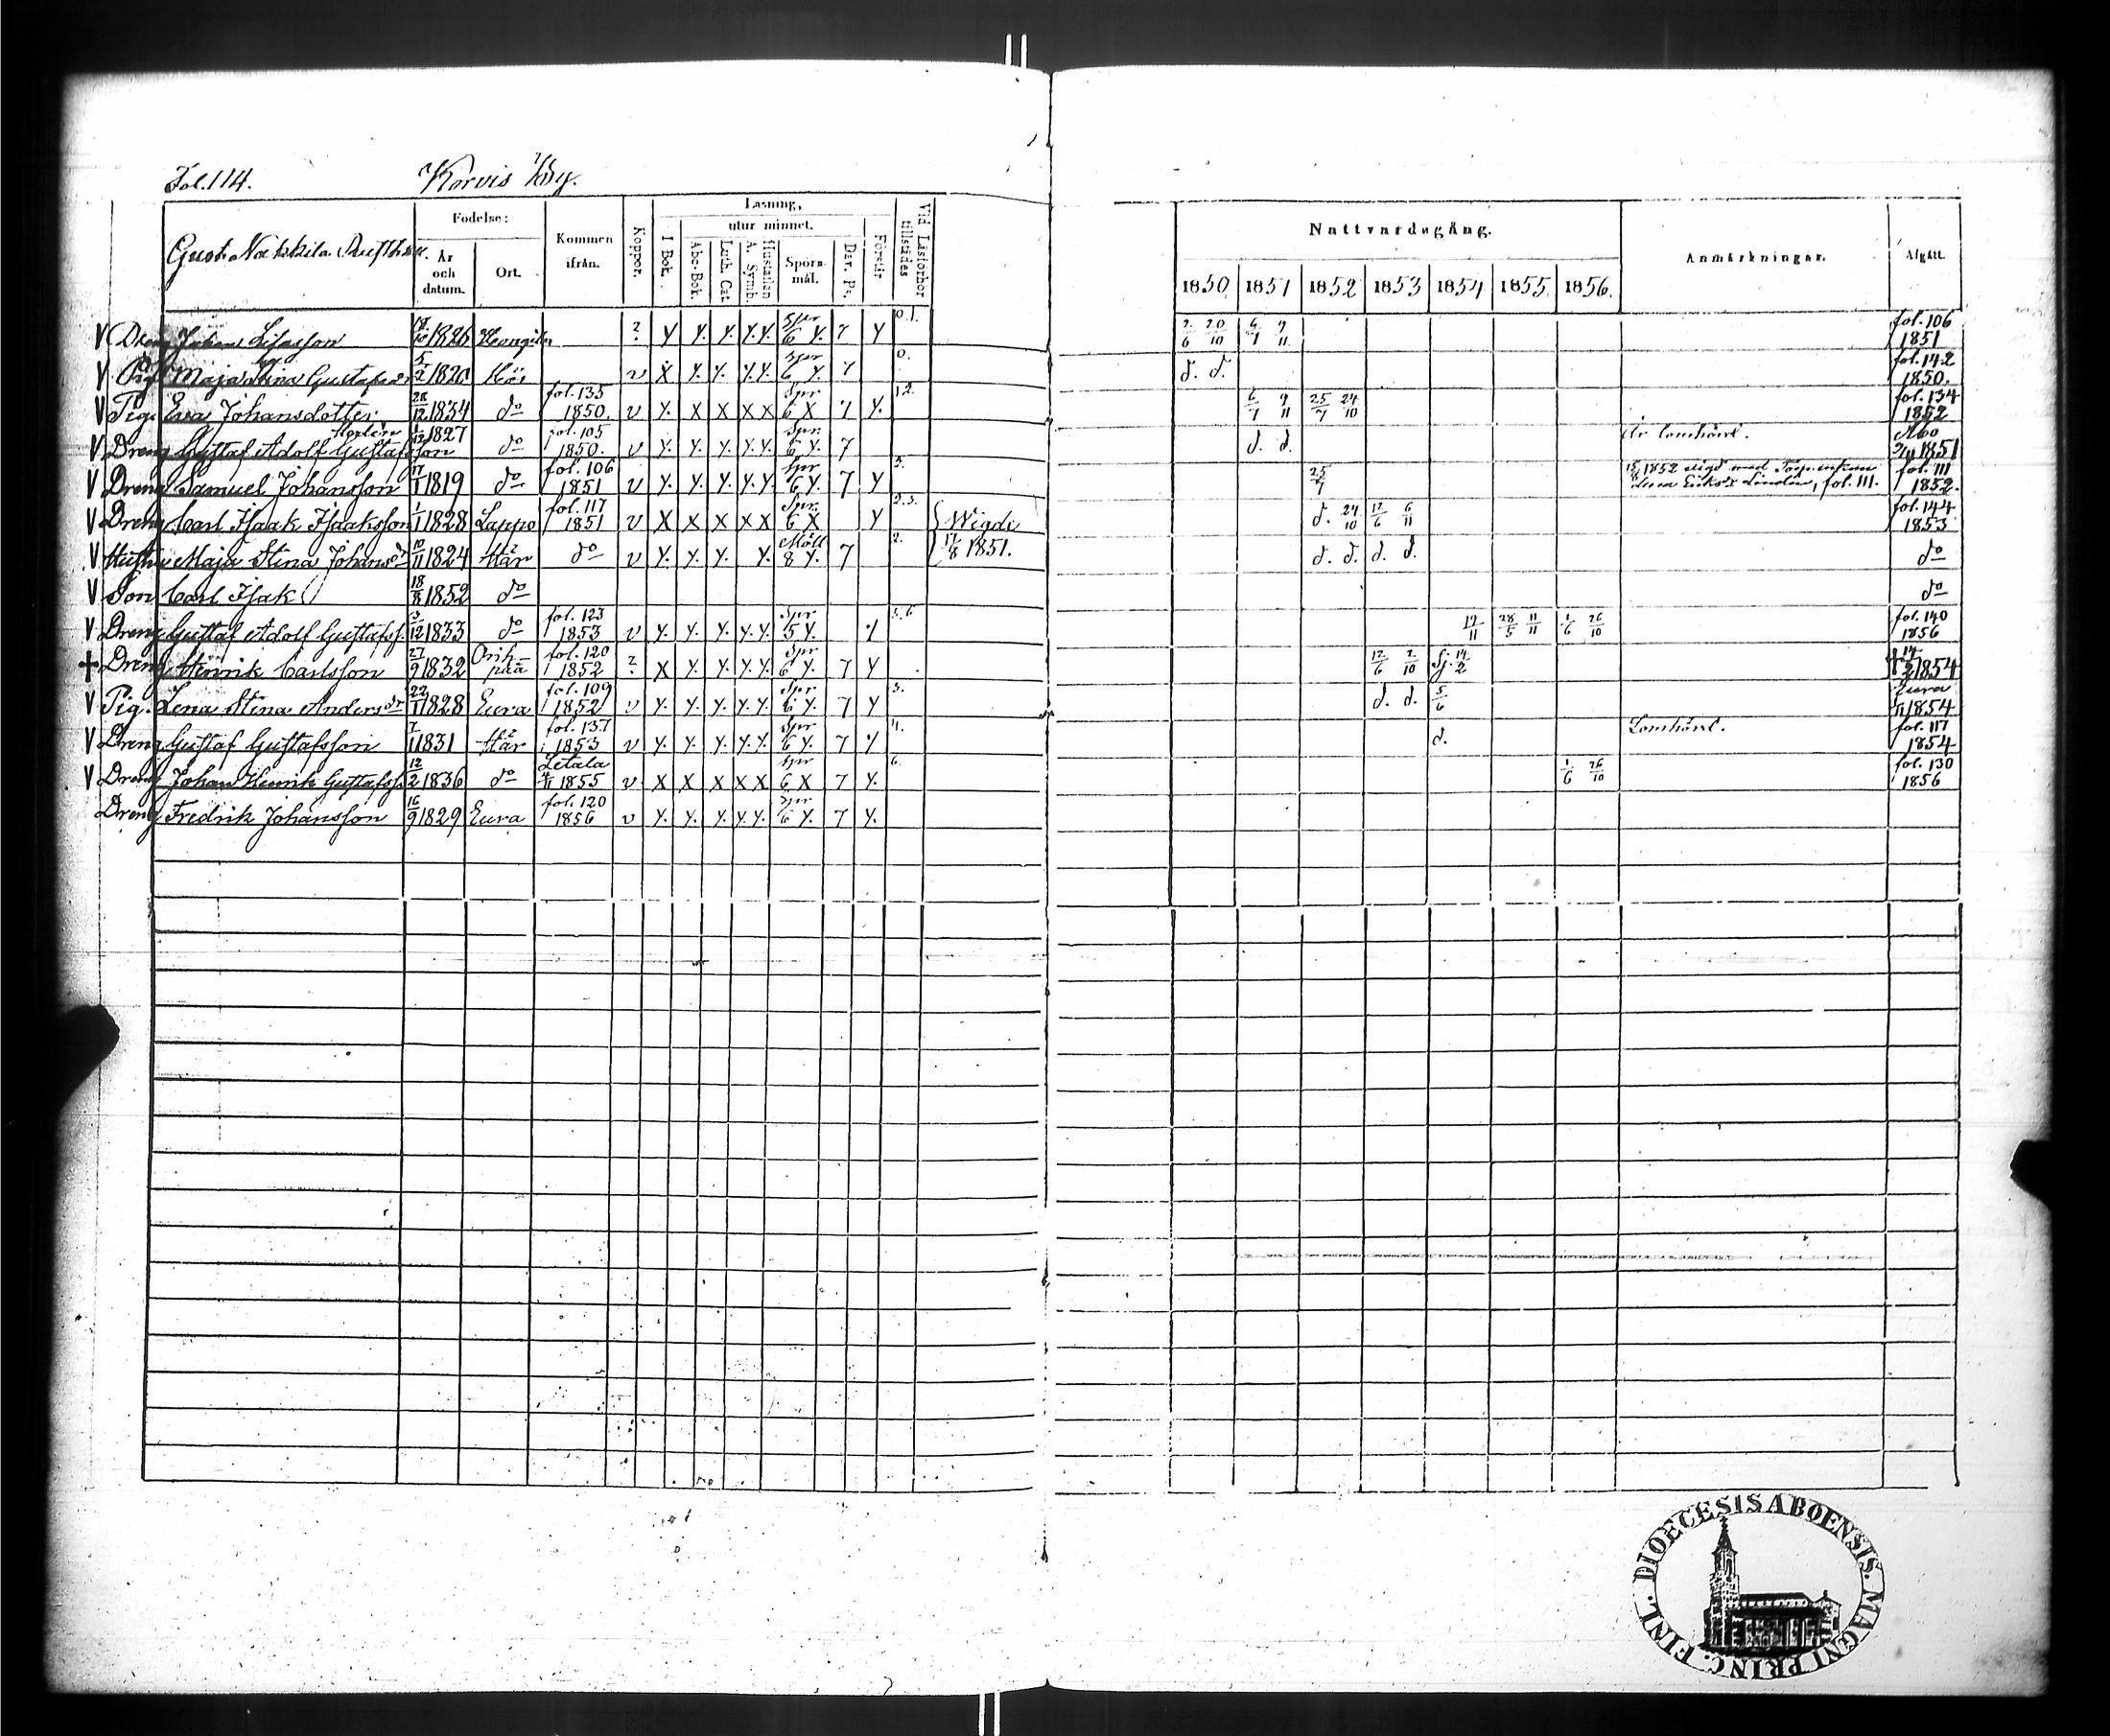 Fol. 114. Korvis By.
Gust. Nakkila Rusthåll.
Födelse:
År och datum.
Ort.
Kommen ifrån.
Koppor.
Läsning,
utur minnet.
I Bok.
Abc-Bok.
Luth. Cat.
A. Symb.
Hustaflan
Spörsmål.
Dav. Ps.
Förstår.
Vid Läsförhör tillstädes
Nattvardsgång.
1850 1851 1852 1853 1854 1855 1856.
Anmärkningar.
Afgått.
V Dreng Johan 18/10 1826 ? y y. y. y. y. Spr 6 y. 7 y 0.1. 2/6 20/10 6/7 9/11 fol. 106 1851
V Pig. Maja Stina Gustafsdr 5/2 1820 Här v x y. y. y. y. Spr 6 y 7 0. d. d. fol. 142 1850.
V Pig. Eva Johansdotter 28/12 1834 do fol. 135 1850. v y. x x x x Spr 6 x 7 y. 1.2. 6/7 9/11 25/7 24/10 fol. 134 1852
V Dreng Gustaf Adolf Gustafsson 1/12 1827 do fol. 105 1850. v y. y. y. y. y. Spr. 6 y. 7 d. d. Är lomhörd. Åbo 1851
V Dreng Samuel Johansson 17/1 1819 do fol. 106 1851 v y. y. y. y. y. Spr 6 y. 7 y 3. 25/7 1852 vigd med Lena Eriksdr Lindén, fol. 111. fol. 111 1852.
V Dreng Carl Isaak Isaaksson 1/1 1828 Lappo fol. 117 1851 v x x x x x Spr. 6 x y 2.3. Wigde d. 24/10 12/6 6/11 fol. 144 1853
V Hustru Maja Stina Johansdr 10/11 1824 Här do v y. y. y. y. Mölt 8 y. 7 2. 17/8 1851. d. d. d. d. do
V Son Carl Isak 18/8 1852 do do
V Dreng Gustaf Adolf Gustafss. 3/12 1833 do fol. 123 1853 v y. y. y. y. y. Spr 5 y. y 5.6 19/11 28/5 11/11 1/6 26/10 fol. 140 1856
† Dreng Henrik Carlsson 27/9 1832 Orihpää fol. 120 1852 ? x y. y. y. y. Spr 6 y. 7 y 12/6 2/10 Sj. 14/2 † 14/2 1854
V Pig. Lena Stina Andersdr 22/1 1828 Eura fol. 109 1852 v y. y. y. y. y. Spr. 6 y. 7 y 3. d. d. 5/6 Eura 1854
V Dreng Gustaf Gustafsson 7/1 1831 Här fol. 137 1853 v y. y. y. y. y. Spr 6 y. 7 y 4. d. Lomhörd. fol. 117 1854
V Dreng Johan Henrik Gustafss. 12/2 1836 do Letala 1855 v x x x x x Spr 6 x 7 y. 6. 1/6 26/10 fol. 130 1856
Dreng Fredrik Johansson 16/9 1829 Eura fol. 120 1856 v y. y. y. y. y. Spr 6 y. 7 y.
DIOECESIS ABOENSIS. MAGNI PRINC. FINL.